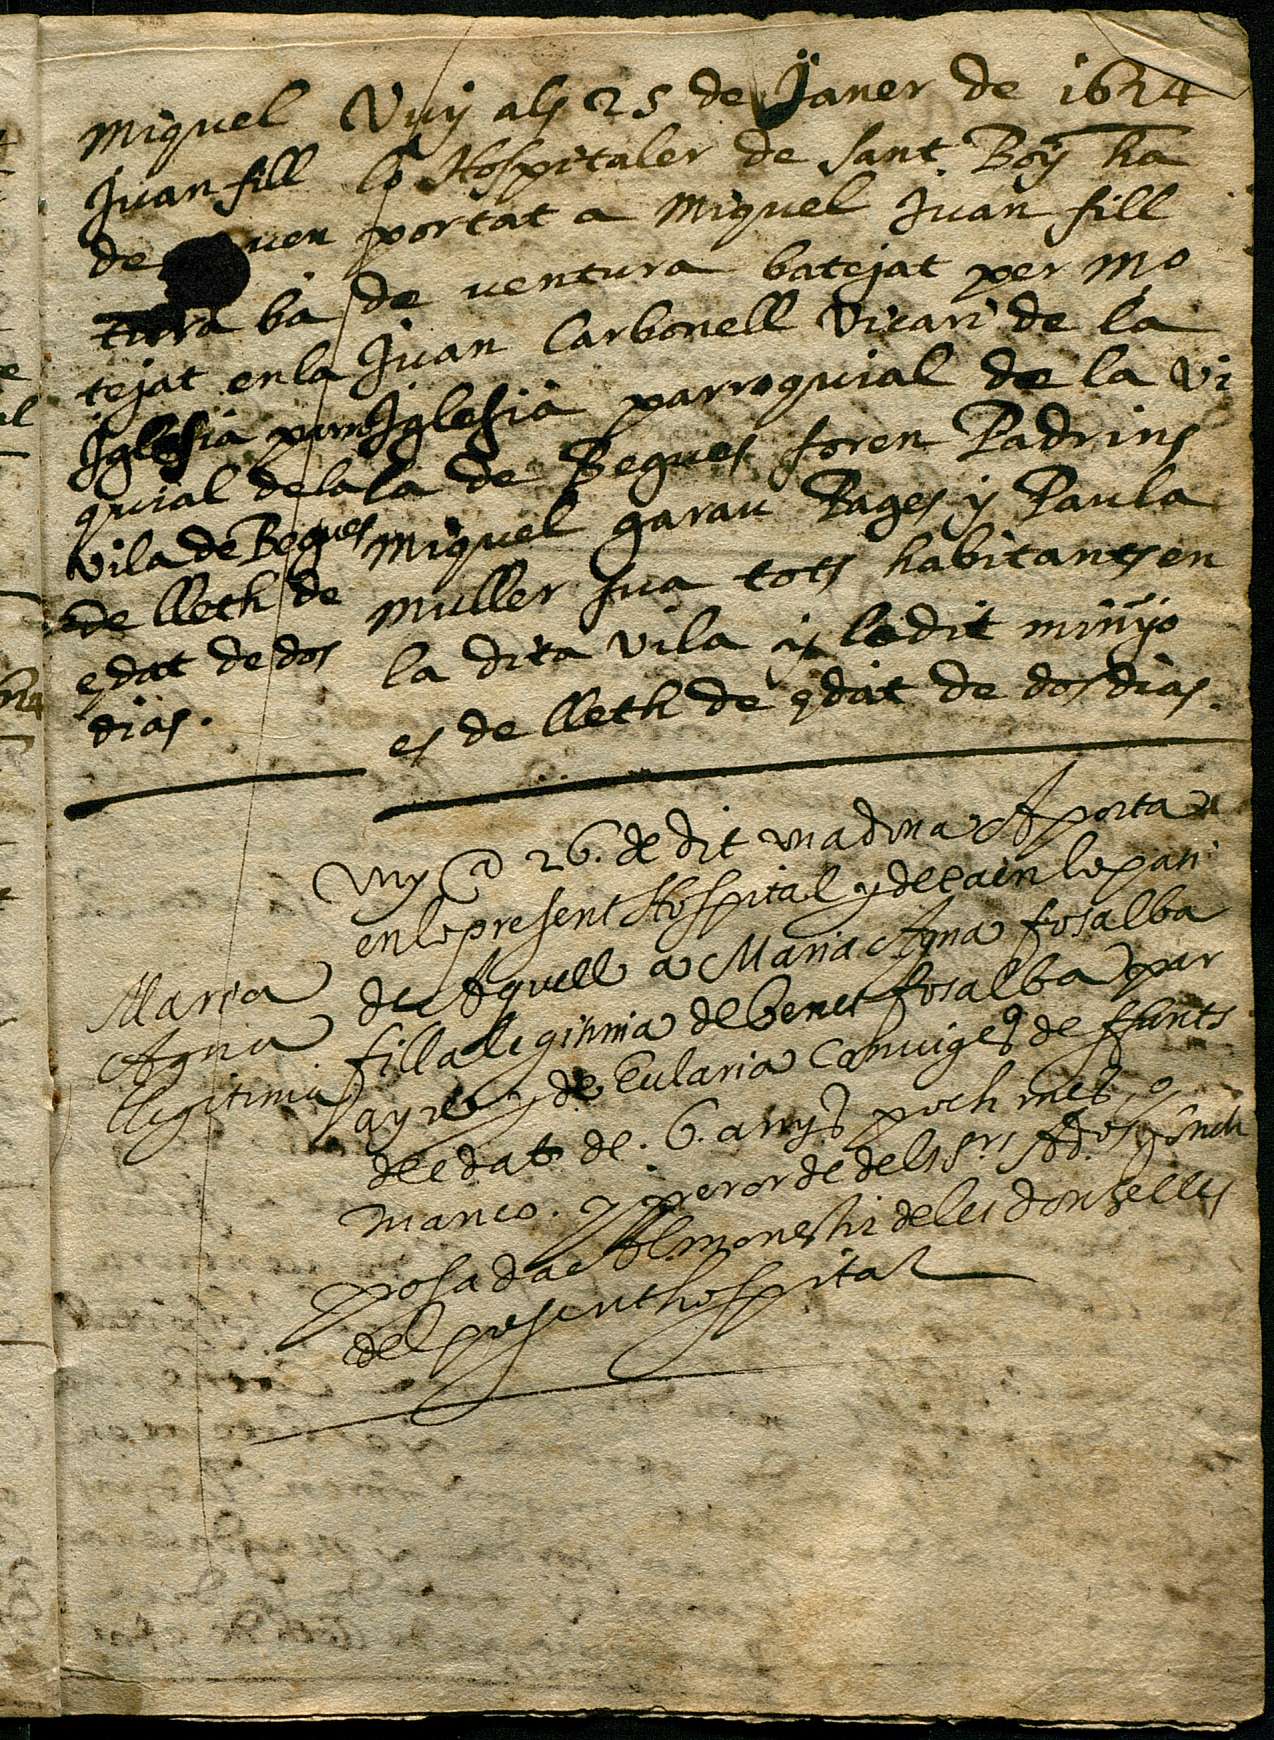 Miquel
Juan fill
de ven
tura ba
tejat en la
Iglesia parro
quial de la
vila de Begues
de lleth de
edat de dos
dias.
Vuy als 25 de Janer de 1624
lo Hospitaler de sant Boy ha
portat a Miquel Juan fill
de ventura batejat per Mo
Juan Carbonell Vicari de la
Iglesia parroquial de la vi
la de Begues foren Padrins
Miquel garau Pages y Paula
muller sua tots habitants en
la dita vila y lo dit minyo
es de lleth de edat de dos dias.
Maria
Agna
llegitima
Vuy a 26. de dit una dona Aporta
en lo present Hospital y deixa en lo pati
de Aquell a Maria Agna fosalba
filla legitima de benet fosalba par
ayre y de Eularia Conuiges defunts
de edat de .6. anys poch mes, o
manco. y per orde dels Srs Ados
posada Al monestir de les donselles
del present hospital